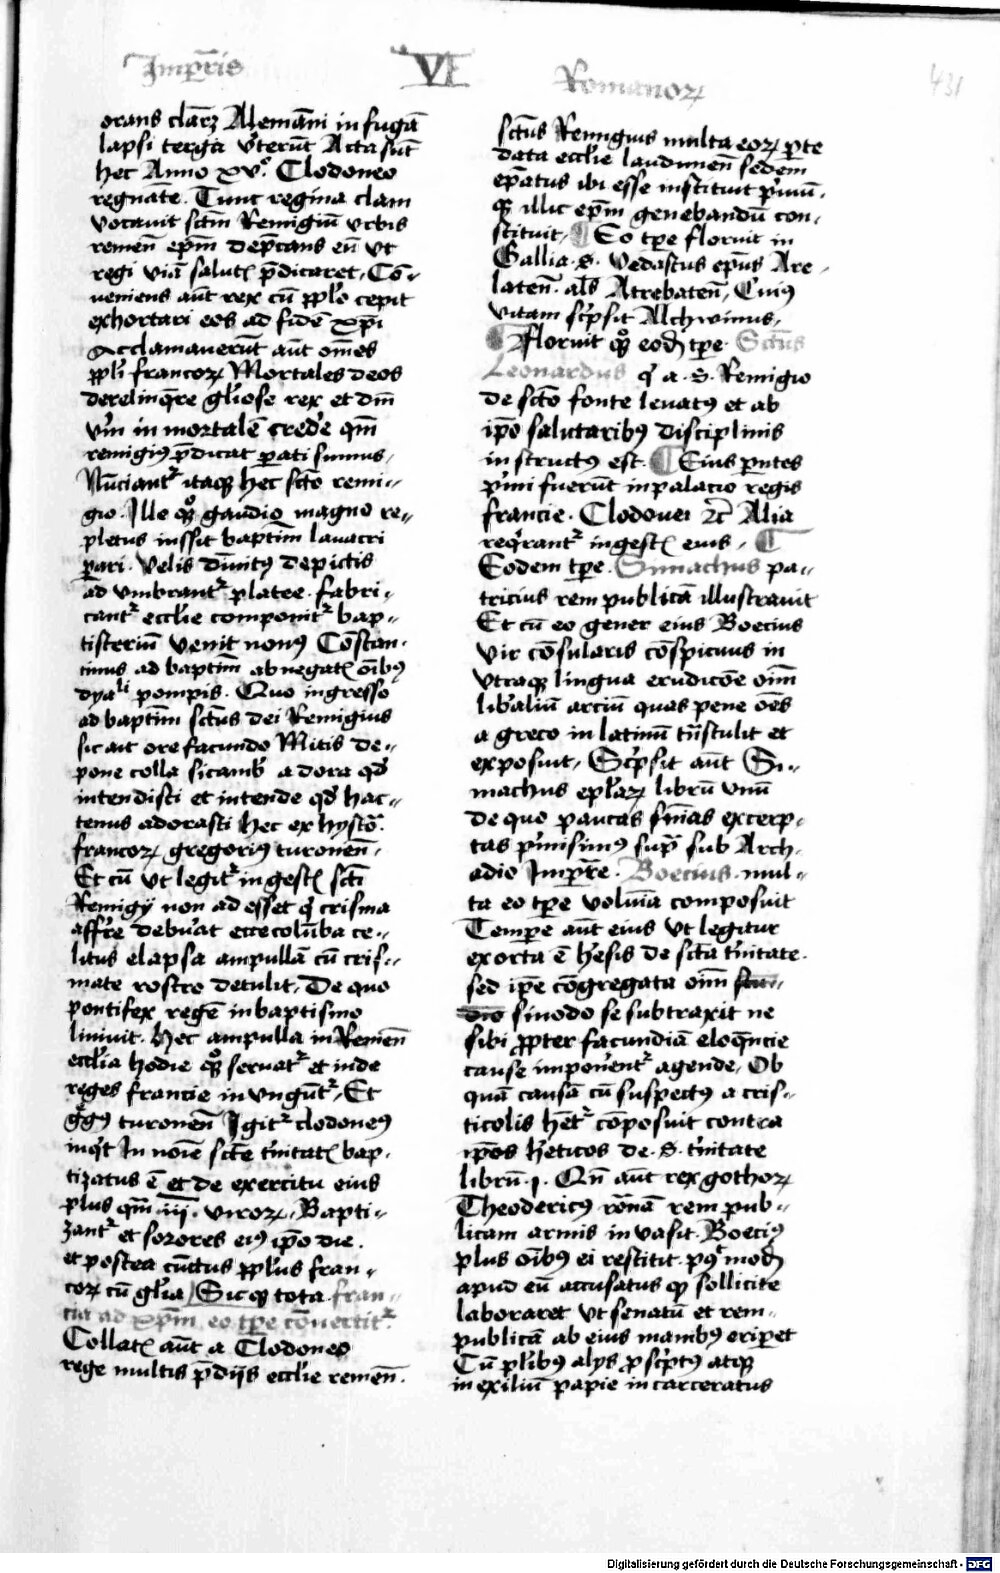 Imperͣris VI Romanoꝝ 431
orans claꝝ Alemāni in fugā
lapsi terga v̓terūt Acta sūt
hec Anno xv°. Clodoneo
regnāte. Tunc regina clam
vocavit sctm̄ Remigiū vrbis
remen̄ epm̄ dep̄cans eū vt
regi viā salutꝭ p̄dicaret, Cō-
veniens aūt rex cū pplo cepit
exhortari eos ad fidē xp̄i
Acclamaverūt aūt om̄es
ppli francoꝝ Mortales deos
derelinq̄re gl̓iose rex et dm̄
vm̄ in mortalē cred̓e qm̄
remigiꝰ p̄dicat ꝑati sumus,
Nūciantͬ itaqꝫ hec sctō remi-
gio. Ille qꝫ gaudio magno re-
pletus iussit baptim̄ lavacri
ꝑari. Velis diūitꝰ depictis
ad vmbrantͬ platee. fabri-
cantͬ eccl̓ie componitͬ bap-
tisteriū venit nonꝰ Cōstan-
tinus ad baptim̄ abnegatꝭ oībꝰ
dyaˡⁱ pompis. Quo ingresso
ad baptim̄ sctūs dei Remigius
sic ait ore facundo Mitis de-
pone colla sicamb̓ adora qd̓
intendisti et intende qd̓ hac-
tenus adorasti hec ex hystō.
francoꝝ gregoriꝰ turonen̄.
Et cū vt legitͬ in gestꝭ scti
Remigij non ad esset qͥ crisma
affr̄e debuat ecce colūba ce-
litus elapsa ampullā cū cris-
mate rostro detulit, De quo
pontifex regē in baptismo
linivit. hec ampulla in Remen̄
eccl̓ia hodie qꝫ servatͬ et inde
reges francie in vngūtͬ, Et
gͤgꝰ turonen̄ Igitͬ clodoneꝰ
inqͥt In noīe scte t̓nitatꝭ bap-
tizatus ē et de exercitu eius
plus qm̄ iij. viroꝝ, Bapti-
zantͬ et sorores eiꝰ ip̄o die.
et postea cūctus pplus fran-
coꝝ cū gl̓ia Sicqꝫ tota fran-
cia ad xpm̄ eo tꝑe cōvertitͬ.
Collatꝭ aūt a Clodoneo
rege multis p̄dijs eccl̓ie remen̄.
sctūs Remigius multa eoꝝ ꝑte
data eccl̓ie laudunen̄ sedem
ep̄atus ibi esse instituit p̓mū.
qꝫ illic ep̄m genebandū con-
stituit, Eo tꝑe floruit in
Gallia. S. Vedastus ep̄us Are-
laten̄. al̓s Atrebaten̄, Cuiꝰ
vitam sc̓psit Alchwinus,
Floruit qꝫ eod̓ tꝑe Sctūs
Leonardus qͥ a. S. Remigio
de sctō fonte levatꝰ et ab
ip̄o salutaribꝰ disciplinis
instructꝰ est. Eius ꝑntes
p̓mi fuerūt in palacio regis
francie. Clodovei ⁊c̄ Alia
reqͥrantͬ in gestꝭ eius,
Eodem tꝑe. Simachus pa-
tricius rem publicā illustravit
Et cū eo gener eius Boecius
vir cōsularis cōspicuus in
vtraqꝫ lingua erudicōe oīm
lib̓aliū arciū quas pene oēs
a greco in latinū trͣstulit et
exposuit, Sc̓psit aūt Si-
machus epl̓aꝝ librū vnū
de quo paucas sn̄ias excerp-
tas p̓misimꝰ supͣ sub Arch-
adio Imperͣre. Boecius. mul-
ta eo tꝑe volūia composuit
Tempe aūt eius vt legitur
exorta ē h̓esis de sctā t̓nitate.
sed ip̄e cōgregata oīm
sinodo se subtraxit ne
sibi ꝓpter facundiā eloqͣncie
cause imponentͬ agende, Ob
quā causā cū suspectꝰ a cris-
ticolis hētͬ cōposuit contra
ip̄os h̓eticos de. S. t̓nitate
librū .I. Qn̄ aūt rex gothoꝝ
Theodericꝰ rōnā rem pub-
licam armis in vasit. Boeciꝰ
plus oībꝰ ei restitit pqͣ mod̓
apud eū accusatus qꝫ sollicite
laboraret vt senatū et rem-
publicā ab eius manibꝰ eriꝑet
Cū pl̓ibꝰ alijs ꝓsc̓ptꝰ atqꝫ
in exiliū papie in carceratus
Digitalisierung gefördert durch die Deutsche Forschungsgemeinschaft - DFG